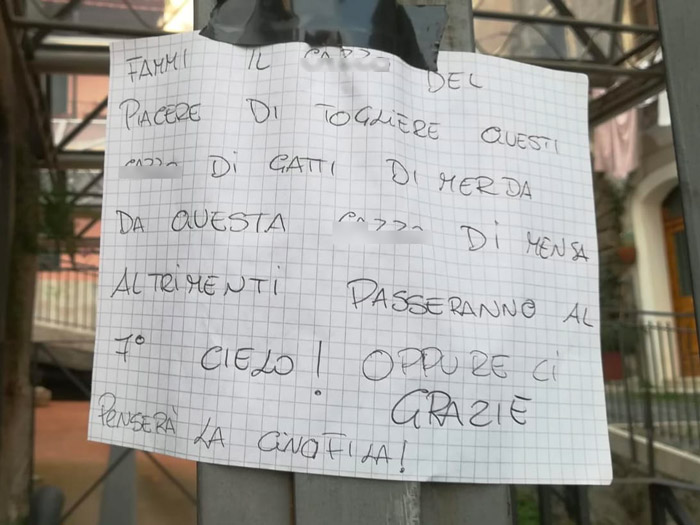 FAMMI IL DEL
PIACERE DI TOGLIERE QUESTI
DI GATTI DI MERDA
DA QUESTA DI MENSA
ALTRIMENTI PASSERANNO AL
7° CIELO! OPPURE CI
PENSERÀ LA CINOFILA!
GRAZIE